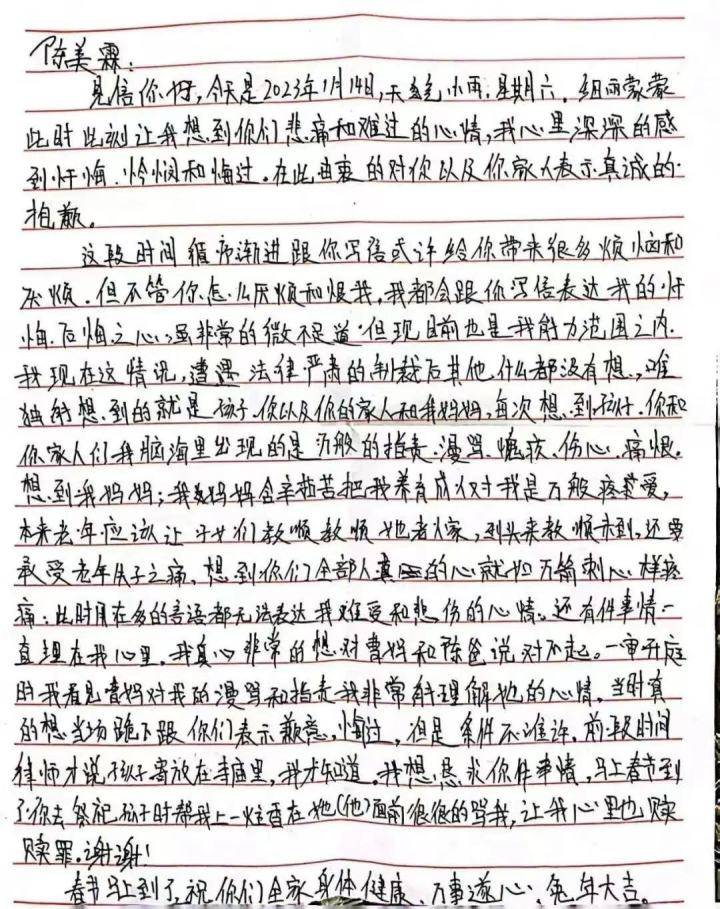 陈美霖:
见信你好,今天是2023年1月14日,天气小雨,星期六,细雨蒙蒙
此时此刻让我想到你们悲痛和难过的心情,我心里深深的感
到忏悔、怜悯和悔过。在此由衷的对你以及你家人表示真诚的
抱歉。
这段时间循序渐进跟你写信或许给你带来很多烦恼和
厌烦。但不管你怎么厌烦和恨我,我都会跟你写信表达我的忏
悔、后悔之心,虽非常的微不足道,但现目前也是我能力范围之内,
我现在这情况,遭遇法律严肃的制裁后其他什么都没有想,唯
独能想到的就是孩子、你以及你的家人和我妈妈,每次想到孩子、你和
你家人们我脑海里出现的是万般的指责、漫骂、愧疚、伤心、痛恨。
想到我妈妈;我妈妈含辛茹苦把我养育成人对我是万般疼爱,
本来老年应该让子女们教顺教顺她老人家,到头来教顺未到,还要
承受老年失子之痛,想到你们全部人真的心就如万箭刺心样疼
痛;此时用在多的言语都无法表达我难受和悲伤的心情。还有件事情一
直埋在我心里,我真心非常的想对曹妈和陈爸说对不起。一审开庭
时我看见曹妈对我的漫骂和指责我非常能理解她的心情,当时真
的想当场跪下跟你们表示歉意,悔过,但是条件不准许,前段时间
律师才说孩子寄放在寺庙里,我才知道,我想恳求你件事情,马上春节到
了你去祭祀孩子时帮我上一炷香在她(他)面前狠狠的骂我,让我心里也赎
赎罪,谢谢!
春节马上到了,祝你们全家身体健康、万事遂心,兔年大吉。